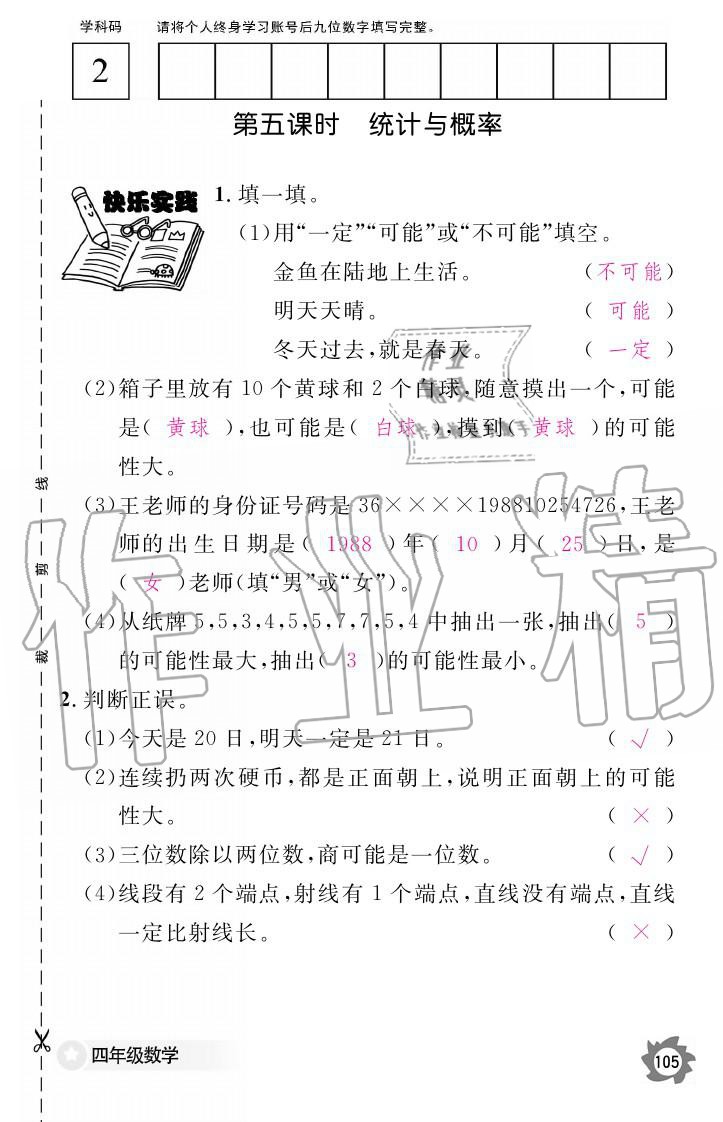 学科码　请将个人终身学习账号后九位数字填写完整。
2
第五课时　统计与概率
快乐实践
1. 填一填。
(1)用“一定”“可能”或“不可能”填空。
金鱼在陆地上生活。　(不可能)
明天天晴。　( 可能 )
冬天过去,就是春天。　( 一定 )
(2)箱子里放有 10 个黄球和 2 个白球,随意摸出一个,可能
是( 黄球 ),也可能是( 白球 ),摸到( 黄球 )的可能
性大。
(3)王老师的身份证号码是 36××××198810254726,王老
师的出生日期是( 1988 )年( 10 )月( 25 )日,是
( 女 )老师(填“男”或“女”)。
(4)从纸牌 5,5,3,4,5,5,7,7,5,4 中抽出一张,抽出( 5 )
的可能性最大,抽出( 3 )的可能性最小。
2. 判断正误。
(1)今天是 20 日,明天一定是 21 日。　( √ )
(2)连续扔两次硬币,都是正面朝上,说明正面朝上的可能
性大。　( × )
(3)三位数除以两位数,商可能是一位数。　( √ )
(4)线段有 2 个端点,射线有 1 个端点,直线没有端点,直线
一定比射线长。　( × )
线
剪
裁
作业精
四年级数学
105